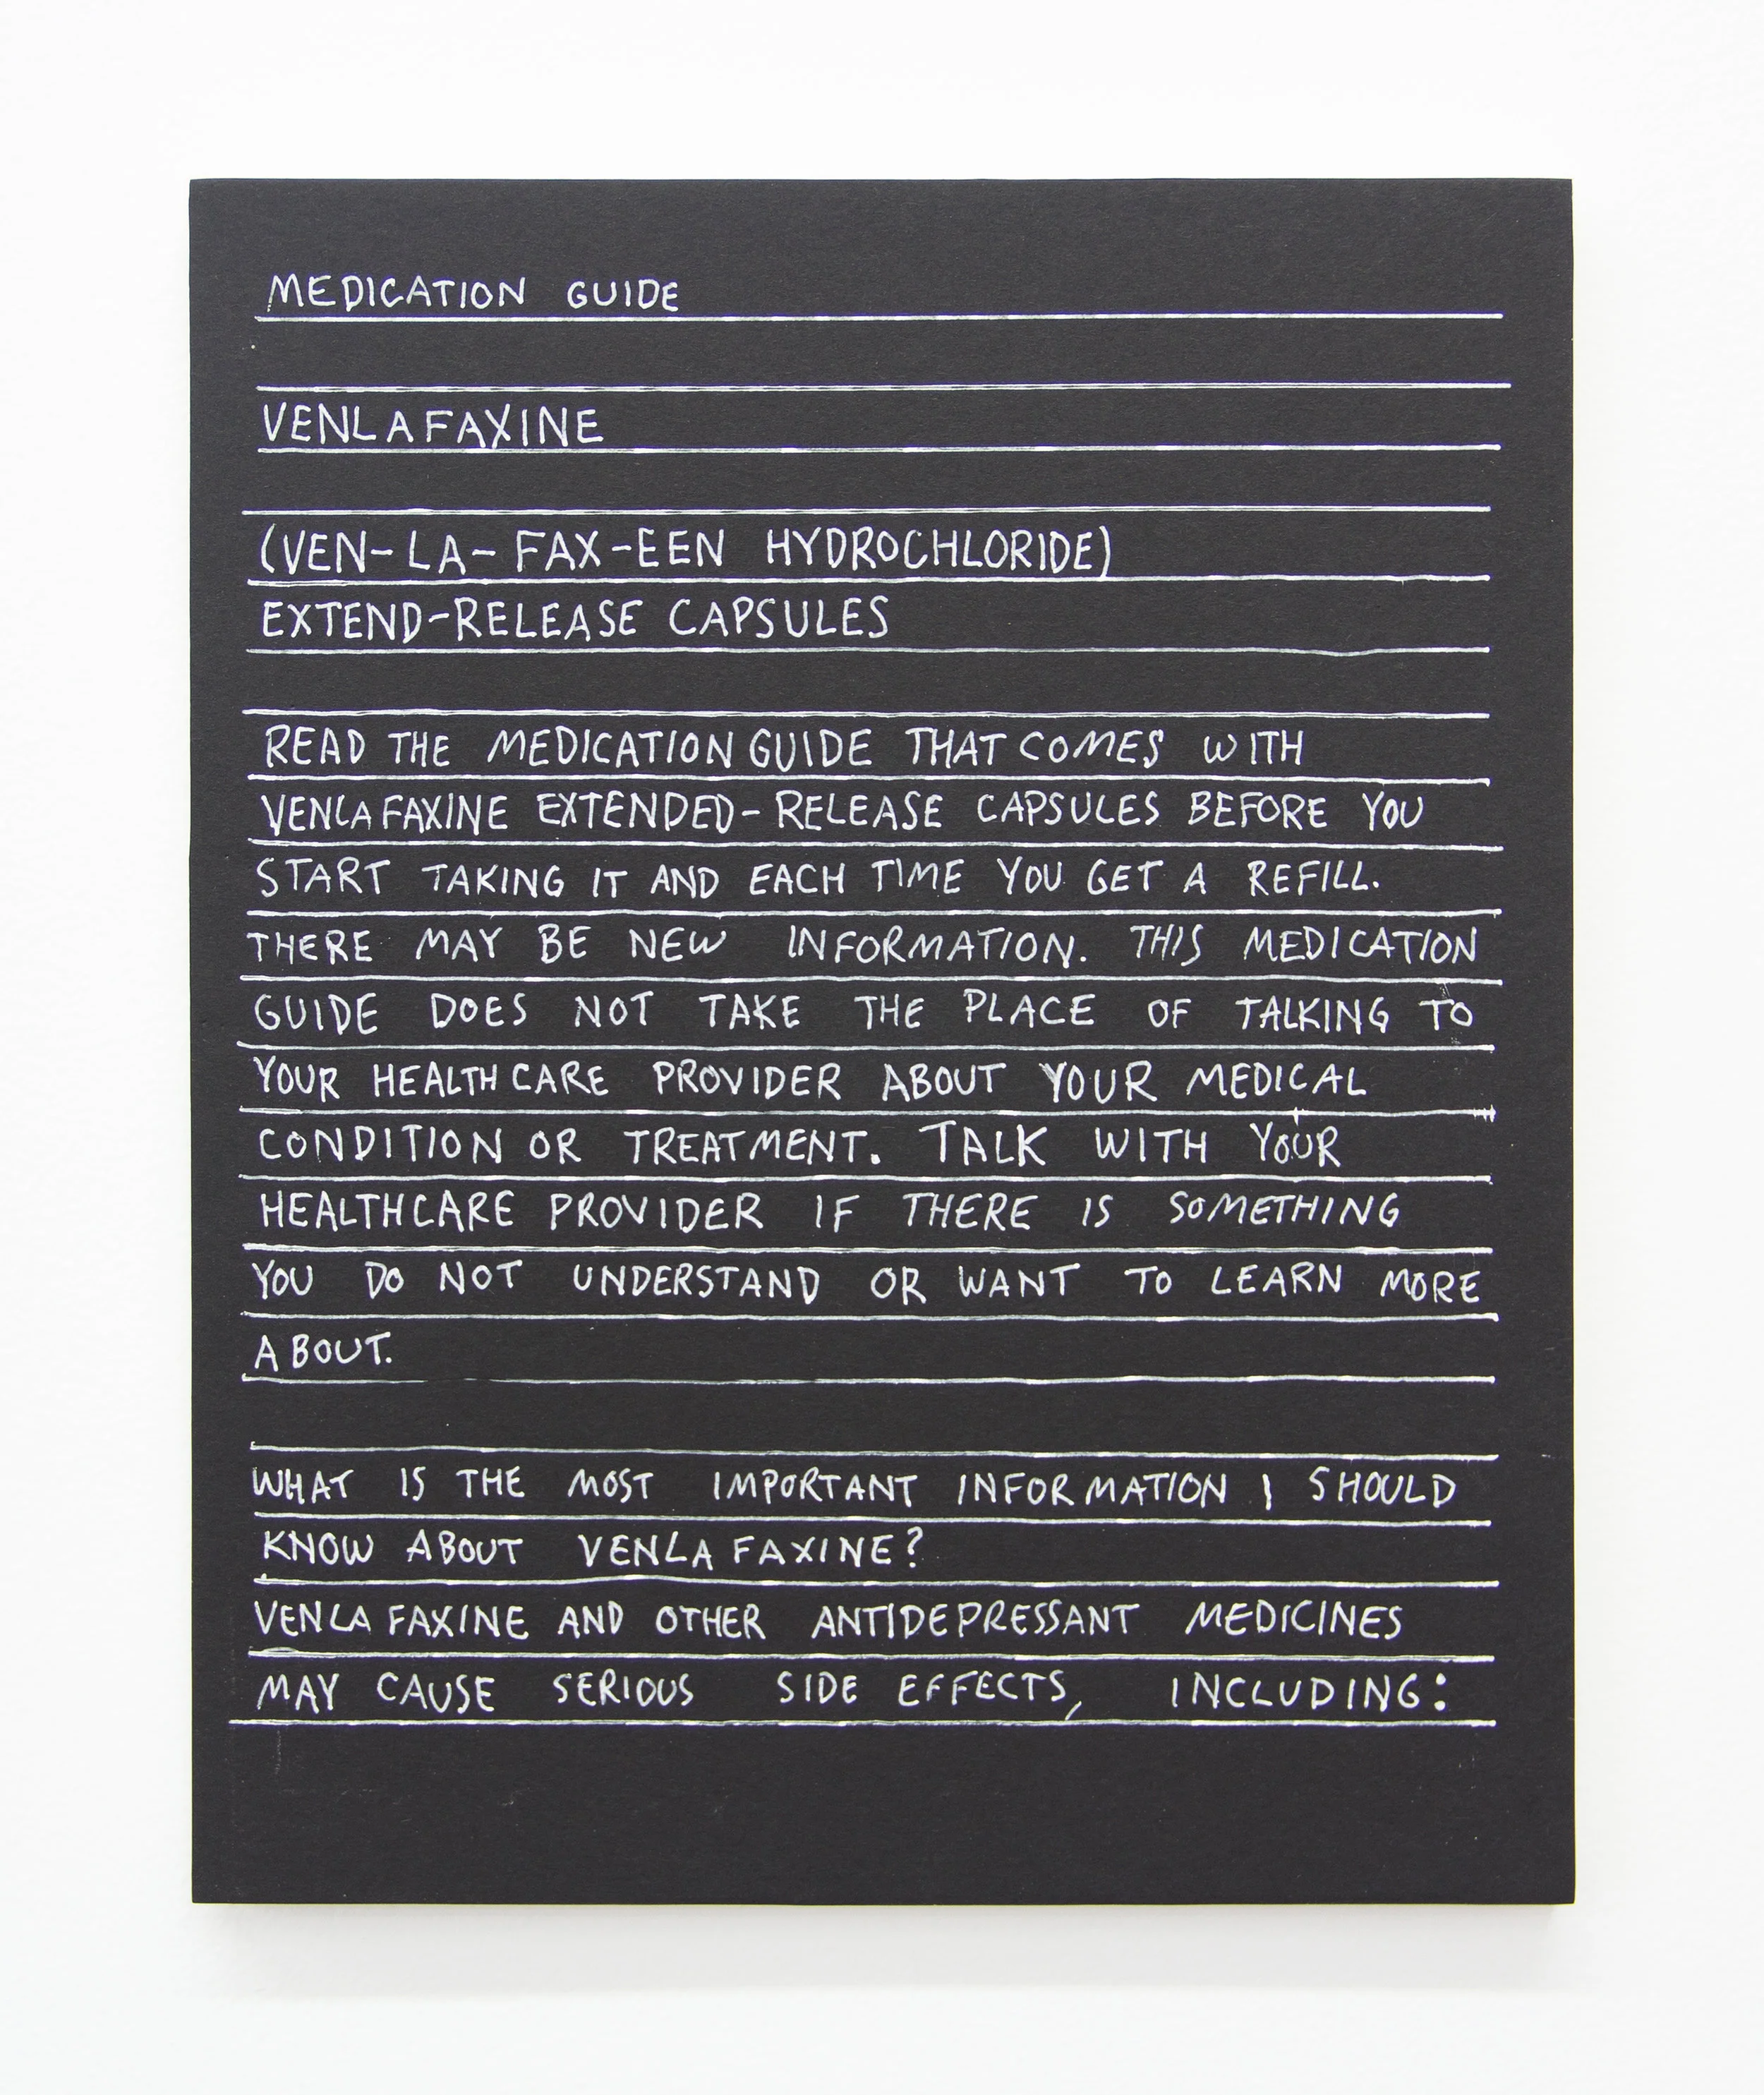 MEDICATION GUIDE
VENLAFAXINE
(VEN-LA-FAX-EEN HYDROCHLORIDE)
EXTEND-RELEASE CAPSULES
READ THE MEDICATION GUIDE THAT COMES WITH
VENLAFAXINE EXTENDED-RELEASE CAPSULES BEFORE YOU
START TAKING IT AND EACH TIME YOU GET A REFILL.
THERE MAY BE NEW INFORMATION. THIS MEDICATION
GUIDE DOES NOT TAKE THE PLACE OF TALKING TO
YOUR HEALTHCARE PROVIDER ABOUT YOUR MEDICAL
CONDITION OR TREATMENT. TALK WITH YOUR
HEALTHCARE PROVIDER IF THERE IS SOMETHING
YOU DO NOT UNDERSTAND OR WANT TO LEARN MORE
ABOUT.
WHAT IS THE MOST IMPORTANT INFORMATION I SHOULD
KNOW ABOUT VENLAFAXINE?
VENLAFAXINE AND OTHER ANTIDEPRESSANT MEDICINES
MAY CAUSE SERIOUS SIDE EFFECTS, INCLUDING: